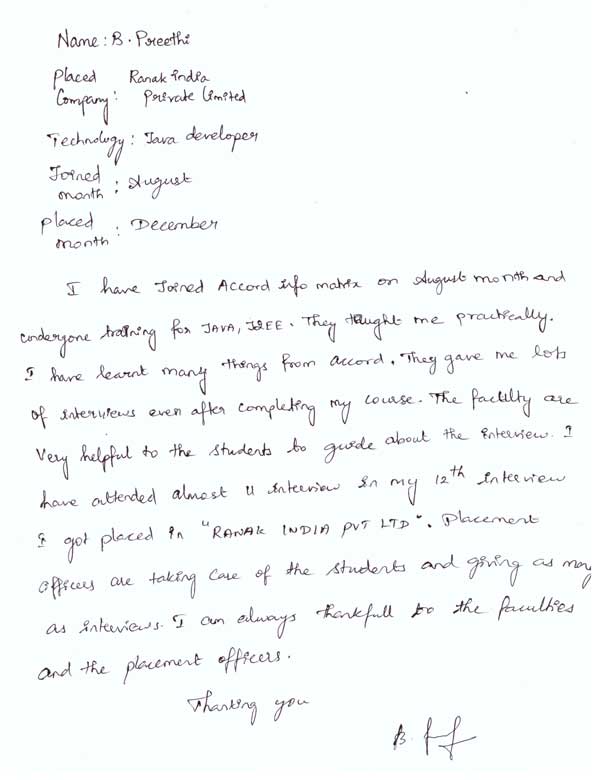 Name: B. Preethi
Placed Ranak india
Company: Private Limited
Technology: Java developer
Joined
month : August
placed
month : December
I have Joined Accord info matrix on August month and
underyone training for JAVA, J2EE. They thught me practically.
I have learnt many things from accord. They gave me lots
of interviews even after completing my course. The facility are
Very helpful to the students to guide about the interview. I
have attended almost 11 interview in my 12th interview
I got placed in "RANAK INDIA PVT LTD". Placement
officers are taking care of the students and giving as many
as interviews. I am always thankfull to the faculties
and the placement officers.
Thanking you
B.